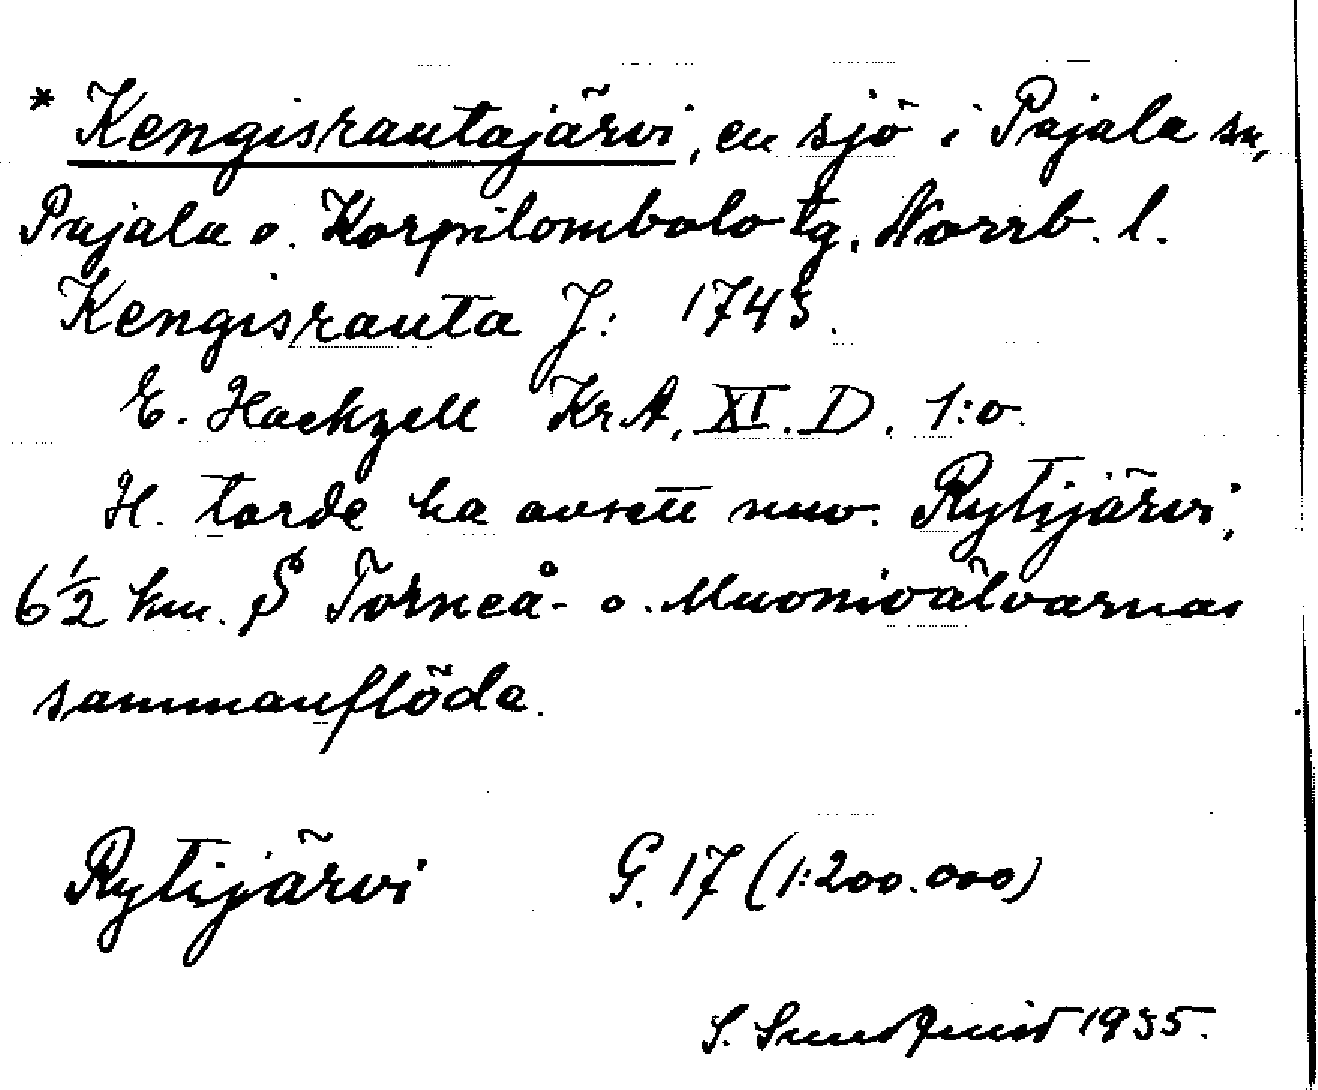 * Kengisrautajärvi, en sjö i Pajala sn,
Pajala o. Korpilombolo tg. Norrb. l.
Kengisrauta J: 1745.
E. Hackzell Kr A, XI. D. 1:o.
H. torde ha avsett nuv. Rytijärvi,
6½ km. S Torneå- o. Muonioälvarnas
sammanflöde.
Rytijärvi G. 17 (1:200.000)
S. Sundquist 1935.